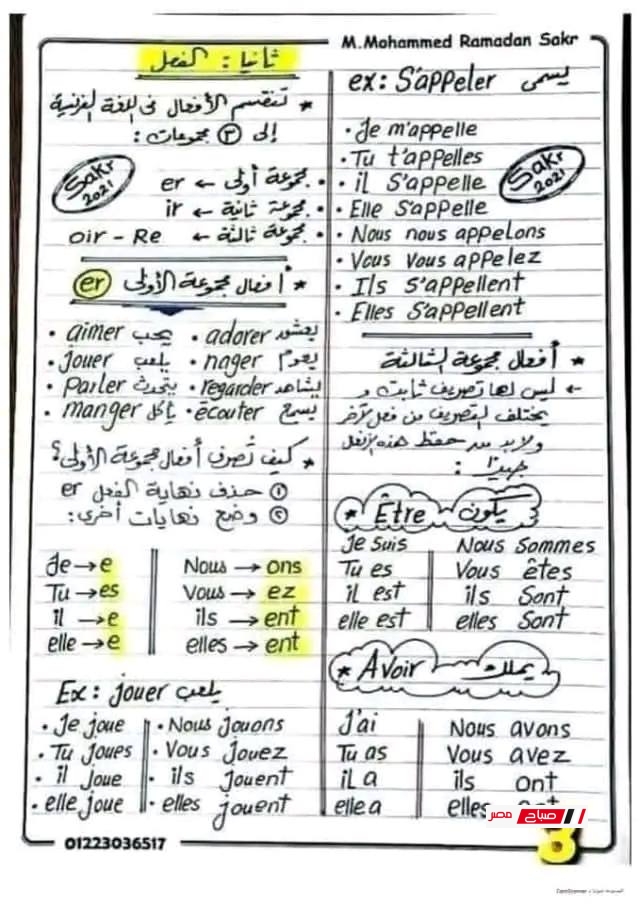 M.Mohammed Ramadan Sakr
ثانيا: الفعل
* تنقسم الأفعال فى اللغة الفرنسية
إلى ③ مجموعات:
Sakr 2021
• مجموعة أولى ← er
• مجموعة ثانية ← ir
• مجموعة ثالثة ← oir - Re
* أفعال مجموعة الأولى er
• aimer يحب • adorer يعشق
• jouer يلعب • nager يعوم
• Parler يتحدث • regarder يشاهد
• manger يأكل • écouter يسمع
* كيف تصرف أفعال مجموعة الأولى؟
① حذف نهاية الفعل er
② وضع نهايات أخرى:
Je → e Nous → ons
Tu → es Vous → ez
il → e ils → ent
elle → e elles → ent
Ex: jouer يلعب
• Je joue • Nous jouons
• Tu joues • Vous jouez
• il joue • ils jouent
• elle joue • elles jouent
ex: S'appeler يسمى
• Je m'appelle
• Tu t'appelles
• il S'appelle
Sakr 2021
• Elle S'appelle
• Nous nous appelons
• Vous Vous appelez
• Ils S'appellent
• Elles S'appellent
* أفعال مجموعة الثالثة
← ليس لها تصريف ثابت و
يختلف التصريف من فعل لآخر
ولابد من حفظ هذه الأفعال
جيدًا:
* Être يكون
Je Suis Nous Sommes
Tu es Vous êtes
il est ils Sont
elle est elles Sont
* Avoir يملك
J'ai Nous avons
Tu as Vous avez
il a ils ont
elle a elles
صباح مصر
01223036517
3
CamScanner